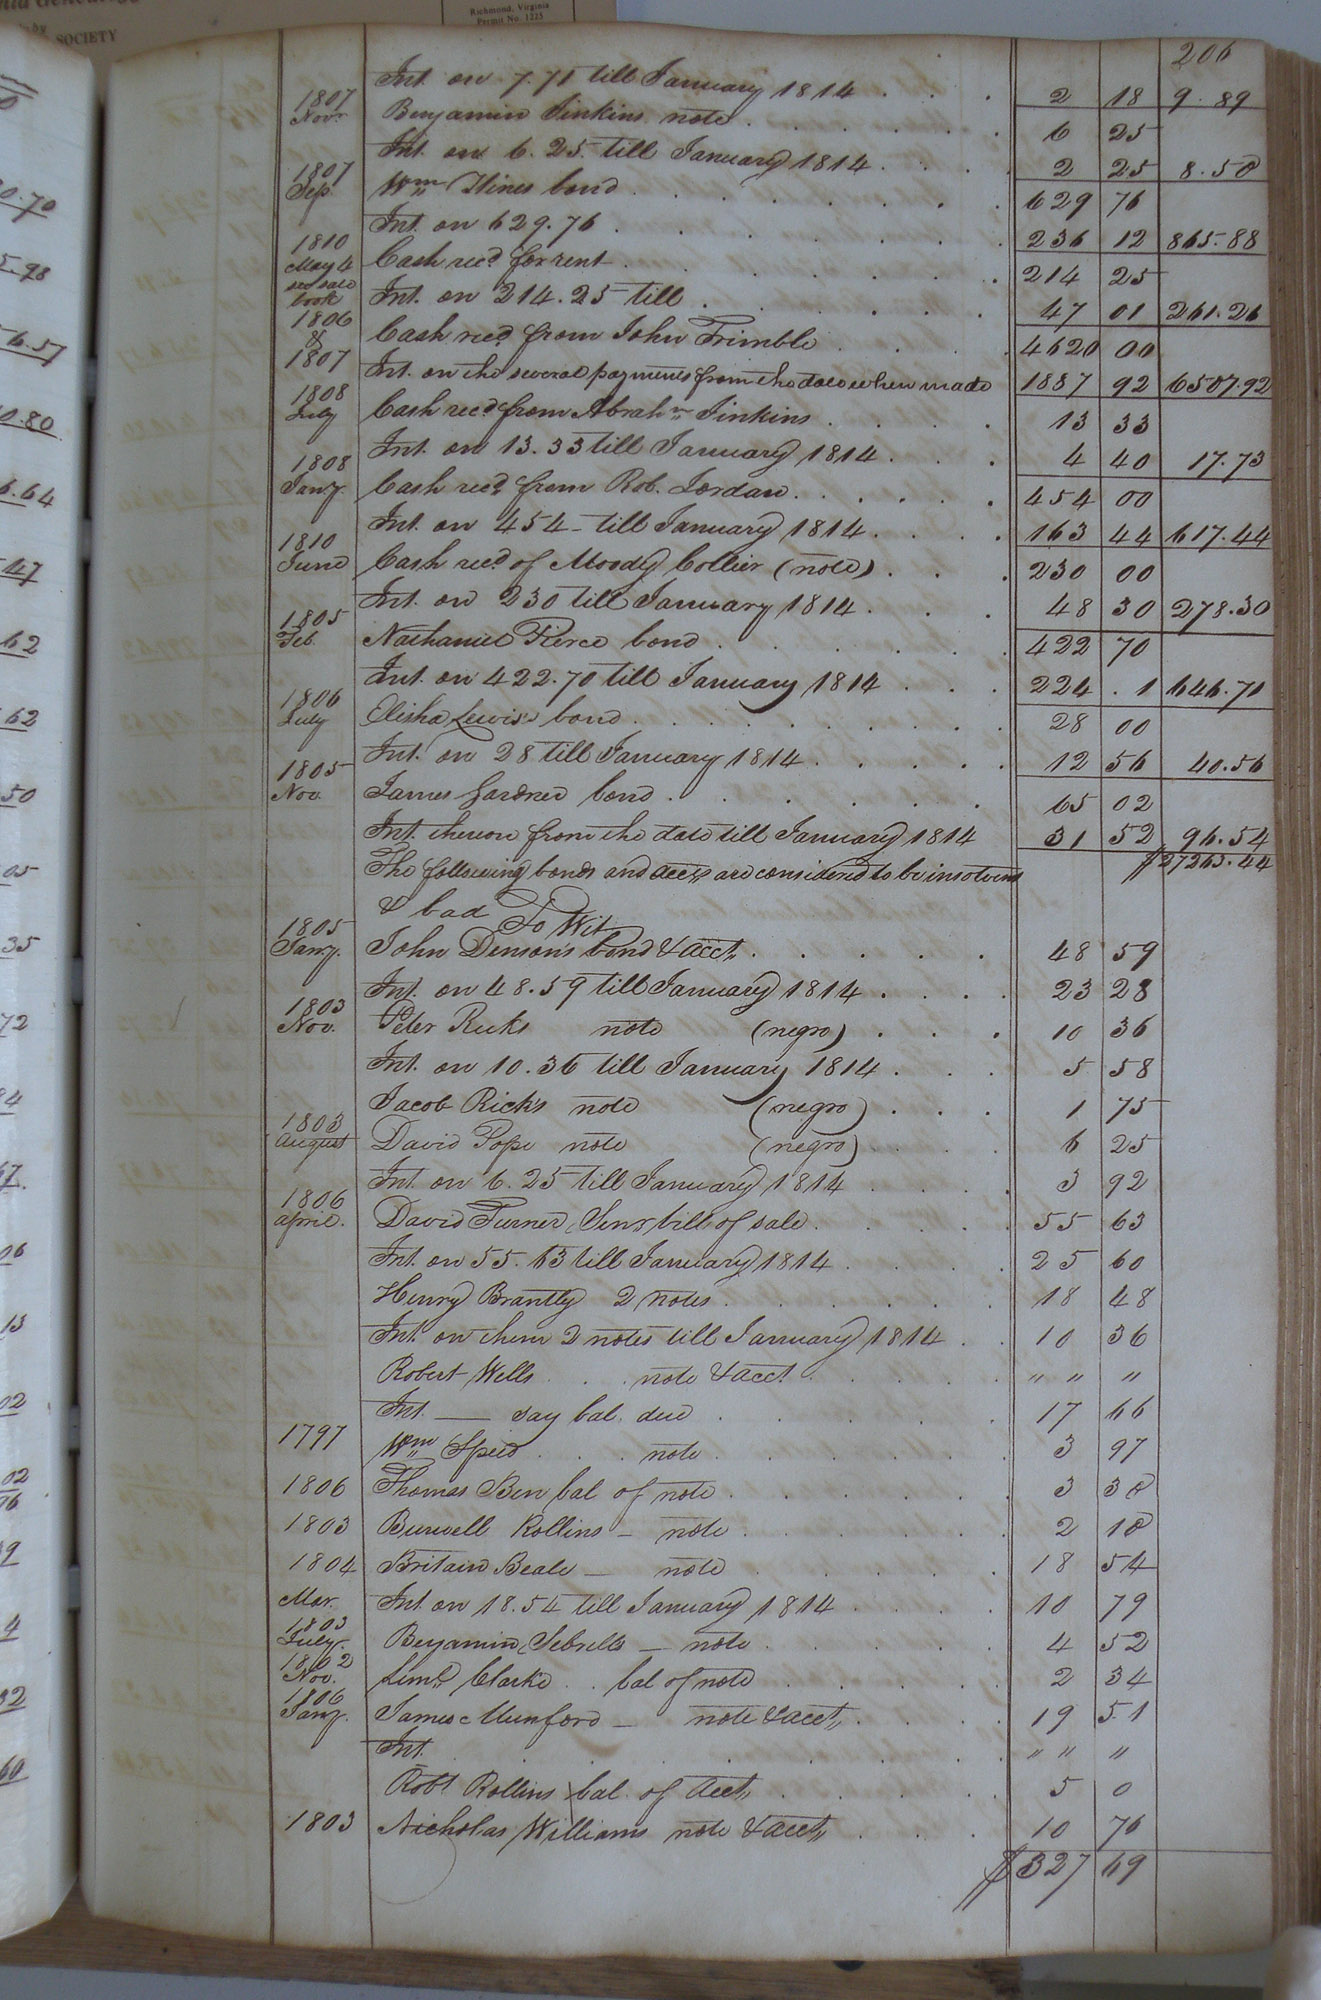 Richmond, Virginia
Permit No. 1225
SOCIETY
206
Int. on 7.71 till January 1814 . . . 2 18 9.89
1807 Novr. Benjamin Jinkins note . . . 6 25
Int. on 6.25 till January 1814 . . . 2 25 8.50
1807 Sep. Wm Hines bond . . . 629 76
Int. on 629.76 . . . 236 12 865.88
1810 May 4 Cash recd. for rent . . . 214 25
see sale book Int. on 214.25 till . . . 47 01 261.26
1806 & 1807 Cash recd. from John Trimble . . . 4620 00
Int. on the several payments from the date when made 1887 92 6507.92
1808 July Cash recd. from Abrahm. Jinkins . . . 13 33
Int. on 13.33 till January 1814 . . . 4 40 17.73
1808 Jany. Cash recd. from Rob. Jordan . . . 454 00
Int. on 454 - till January 1814 . . . 163 44 617.44
1810 June Cash recd. of Moody Collier (note) . . . 230 00
Int. on 230 till January 1814 . . . 48 30 278.30
1805 Feb. Nathaniel Pierce bond . . . 422 70
Int. on 422.70 till January 1814 . . . 224 .1 646.71
1806 July Elisha Lewis's bond . . . 28 00
Int. on 28 till January 1814 . . . 12 56 40.56
1805 Nov. James Gardner bond . . . 65 02
Int. thereon from the date till January 1814 31 52 96.54
The following bonds and acct. are considered to be insolvent $27263.44
& bad To Wit
1805 Jany. John Denson's bond & acct. . . . 48 59
Int. on 48.59 till January 1814 . . . 23 28
1803 Nov. Peter Ricks note (negro) . . . 10 36
Int. on 10.36 till January 1814 . . . 5 58
Jacob Rick's note (negro) . . . 1 75
1803 August David Pope note (negro) . . . 6 25
Int. on 6.25 till January 1814 . . . 3 92
1806 April. David Turner, Senr bill of sale . . . 55 63
Int. on 55.63 till January 1814 . . . 25 60
Henry Brantly 2 notes . . . 18 48
Int. on them 2 notes till January 1814 . . 10 36
Robert Wells . . note & acct. . . . " " "
Int. — say bal. due . . . 17 66
1797 Wm Speed . . . note . . . 3 97
1806 Thomas Ben bal of note . . . 3 38
1803 Burwell Rollins – note . . . 2 18
1804 Britain Beale — note . . . 18 54
Mar. Int. on 18.54 till January 1814 . . . 10 79
1803 July. Benjamin Sebrells – note . . . 4 52
1802 Nov. Clarke . . bal of note . . . 2 34
1806 Jany. James Munford — note & acct. . . . 19 51
Int. . . . " " "
Robt Rollins bal. of acct. . . . 5 0
1803 Nicholas Williams note & acct. . . . 10 76
$327 69